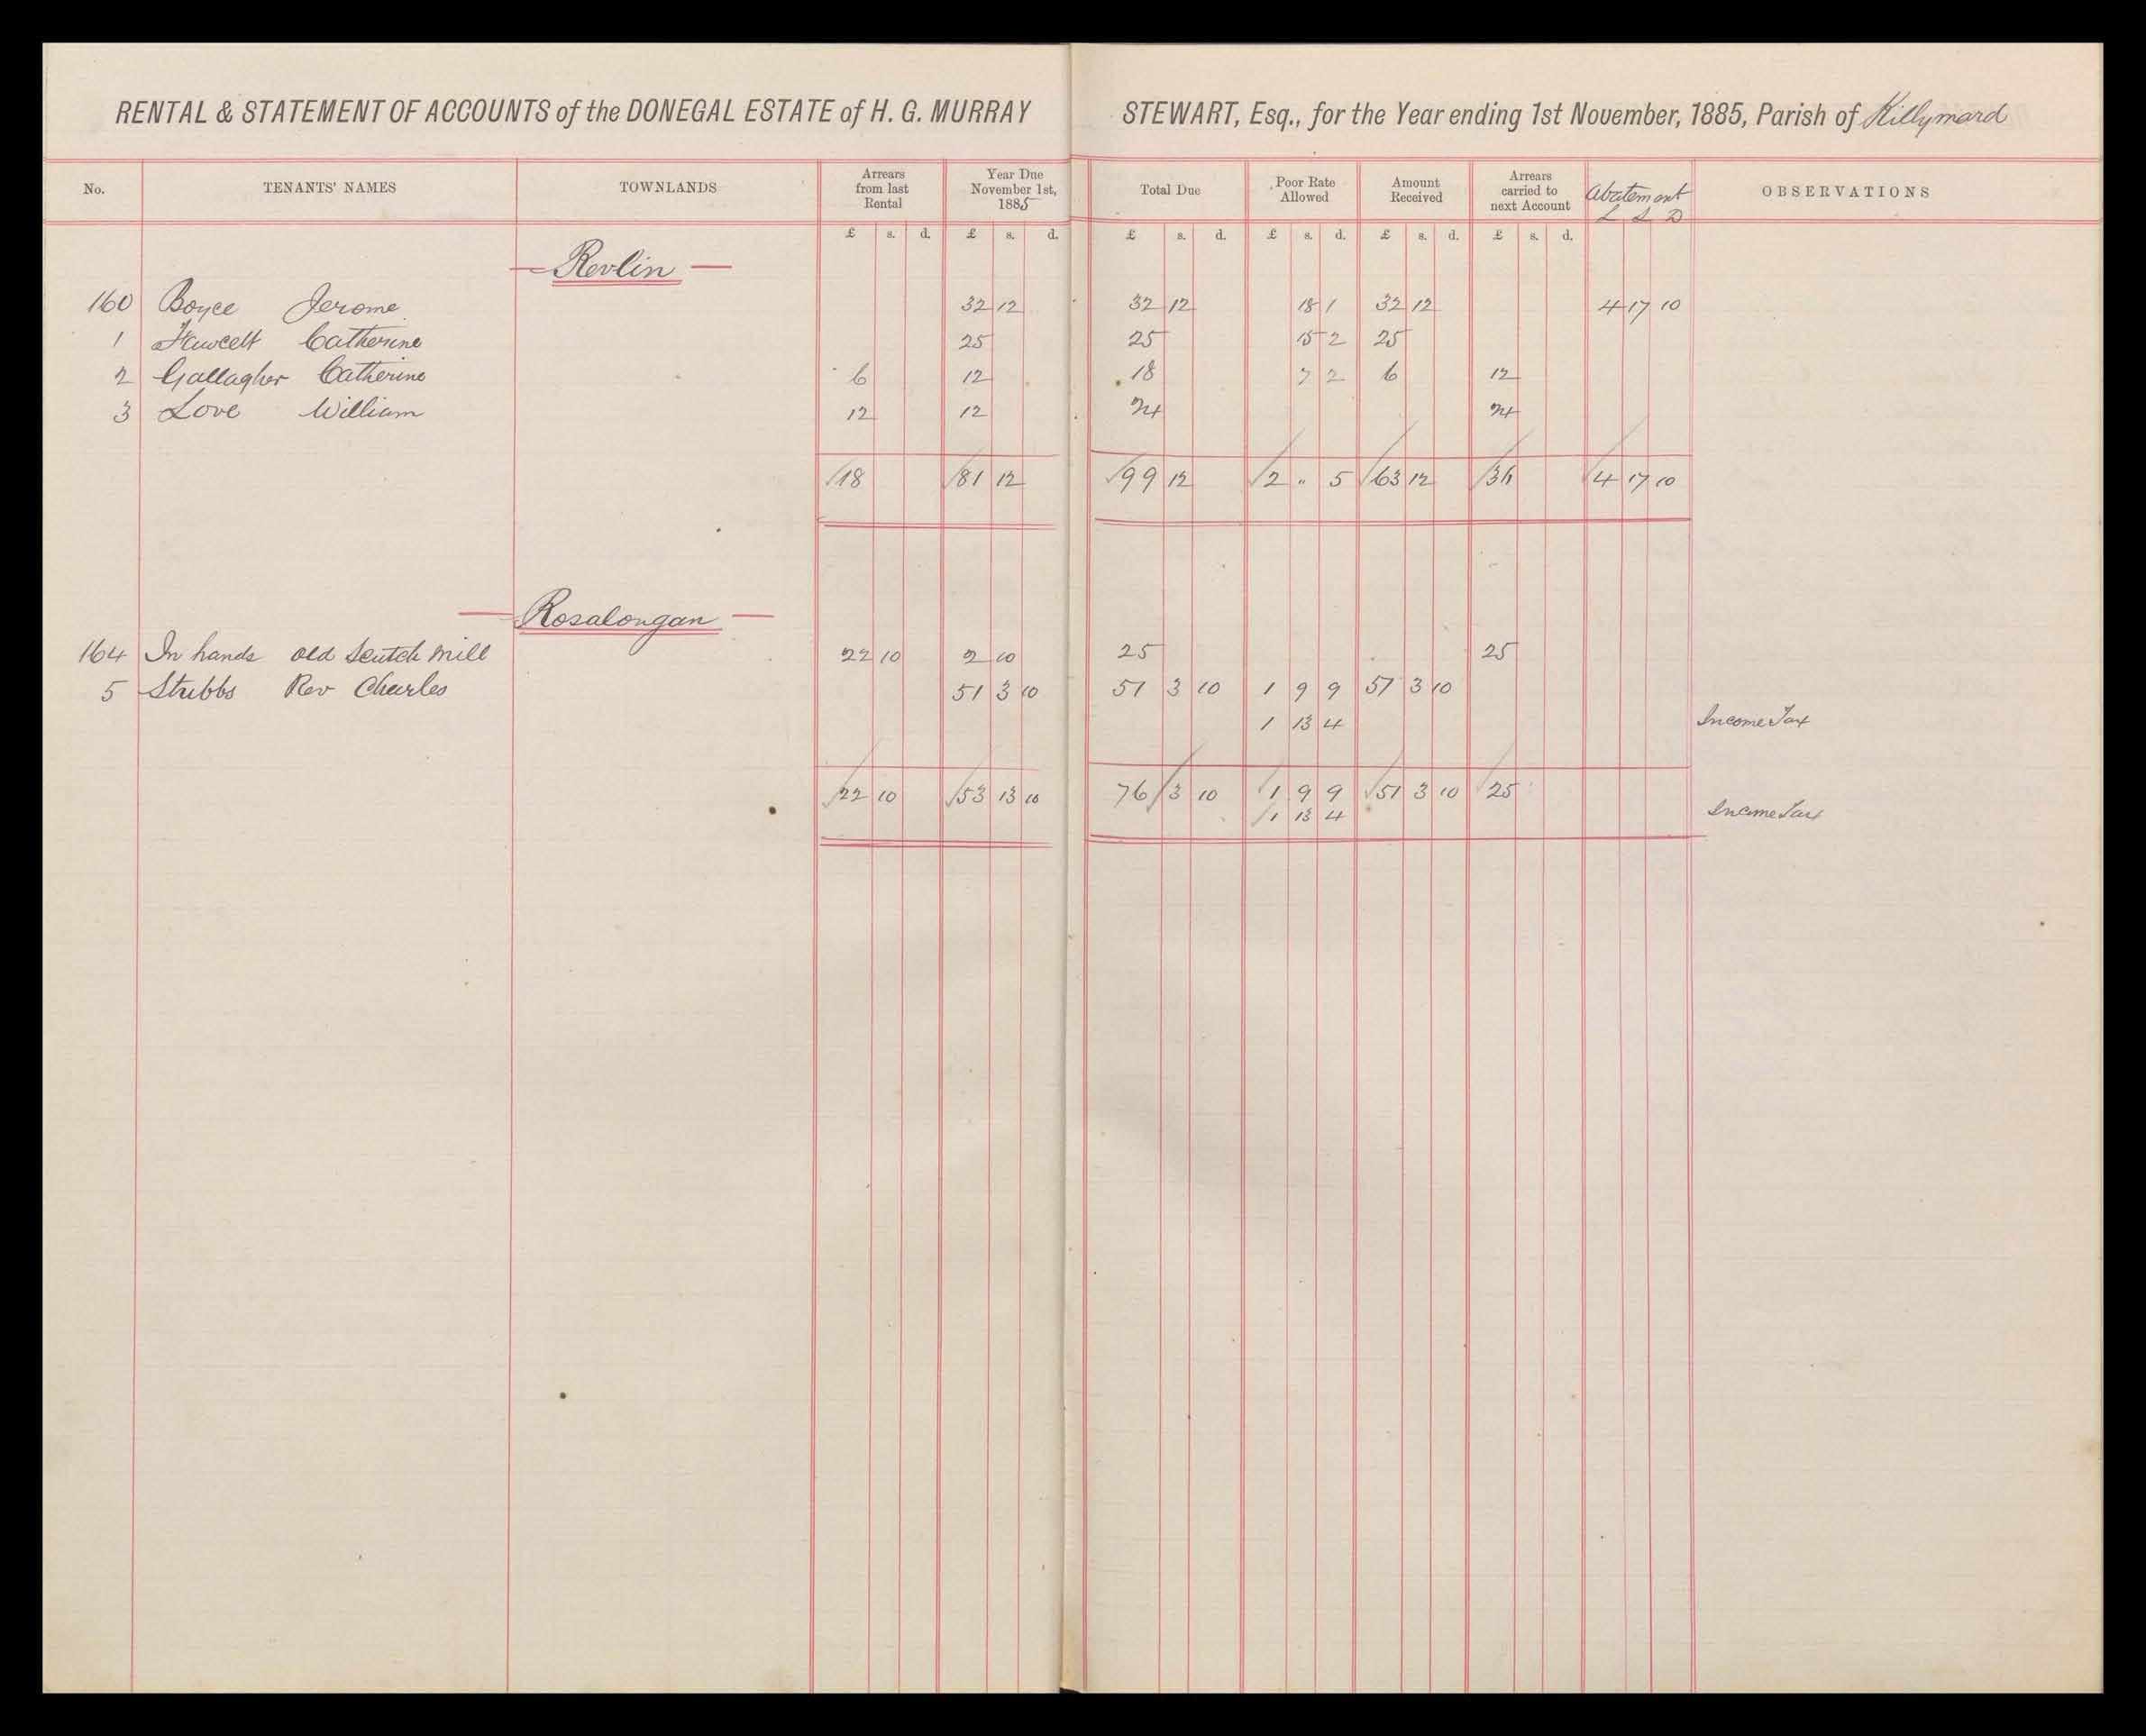 RENTAL & STATEMENT OF ACCOUNTS of the DONEGAL ESTATE of H. G. MURRAY STEWART, Esq., for the Year ending 1st November, 1885, Parish of Killymard
No. TENANTS' NAMES TOWNLANDS Arrears from last Rental Year Due November 1st, 1885 Total Due Poor Rate Allowed Amount Received Arrears carried to next Account Abatement L S D OBSERVATIONS
£ s. d. £ s. d. £ s. d. £ s. d. £ s. d. £ s. d.
Revlin
160 Boyce Jerome 32 12 32 12 18 1 32 12 4 17 10
1 Fawcett Catherine 25 25 15 2 25
2 Gallagher Catherine 6 12 18 7 2 6 12
3 Love William 12 12 24 24
18 81 12 99 12 2 " 5 63 12 36 4 17 10
Rosalongan
164 In hands old Scutch Mill 22 10 2 10 25 25
5 Stubbs Rev Charles 51 3 10 51 3 10 1 9 9 51 3 10
1 13 4 Income Tax
22 10 53 13 10 76 3 10 1 9 9 51 3 10 25
1 13 4 Income Tax